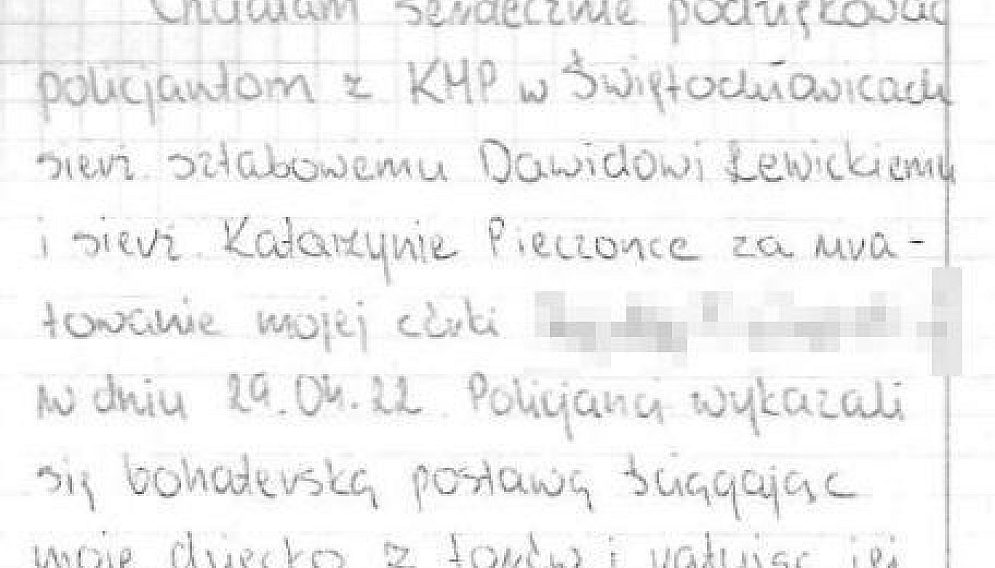 Chciałam serdecznie podziękować
policjantom z KMP w Świętochłowicach
sierż. sztabowemu Dawidowi Lewickiemu
i sierż. Katarzynie Pieczonce za ura-
towanie mojej córki
w dniu 29.04.22. Policjanci wykazali
się bohaterską postawą ściągając
moje dziecko z torów i ratując jej